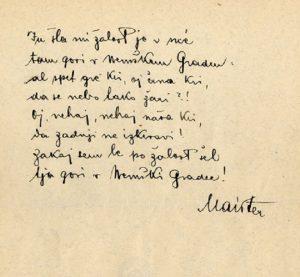 šla mi žalost v
tam gori v Nemškem Gradcu.
al spet gre kri, kri,
da se nebo tako žari?!
Oj, nehaj, nehaj naša kri,
da zadnji ne izkrvavi!
zakaj sem le po žalost šel
tja gori v Nemški Gradec!
Maister